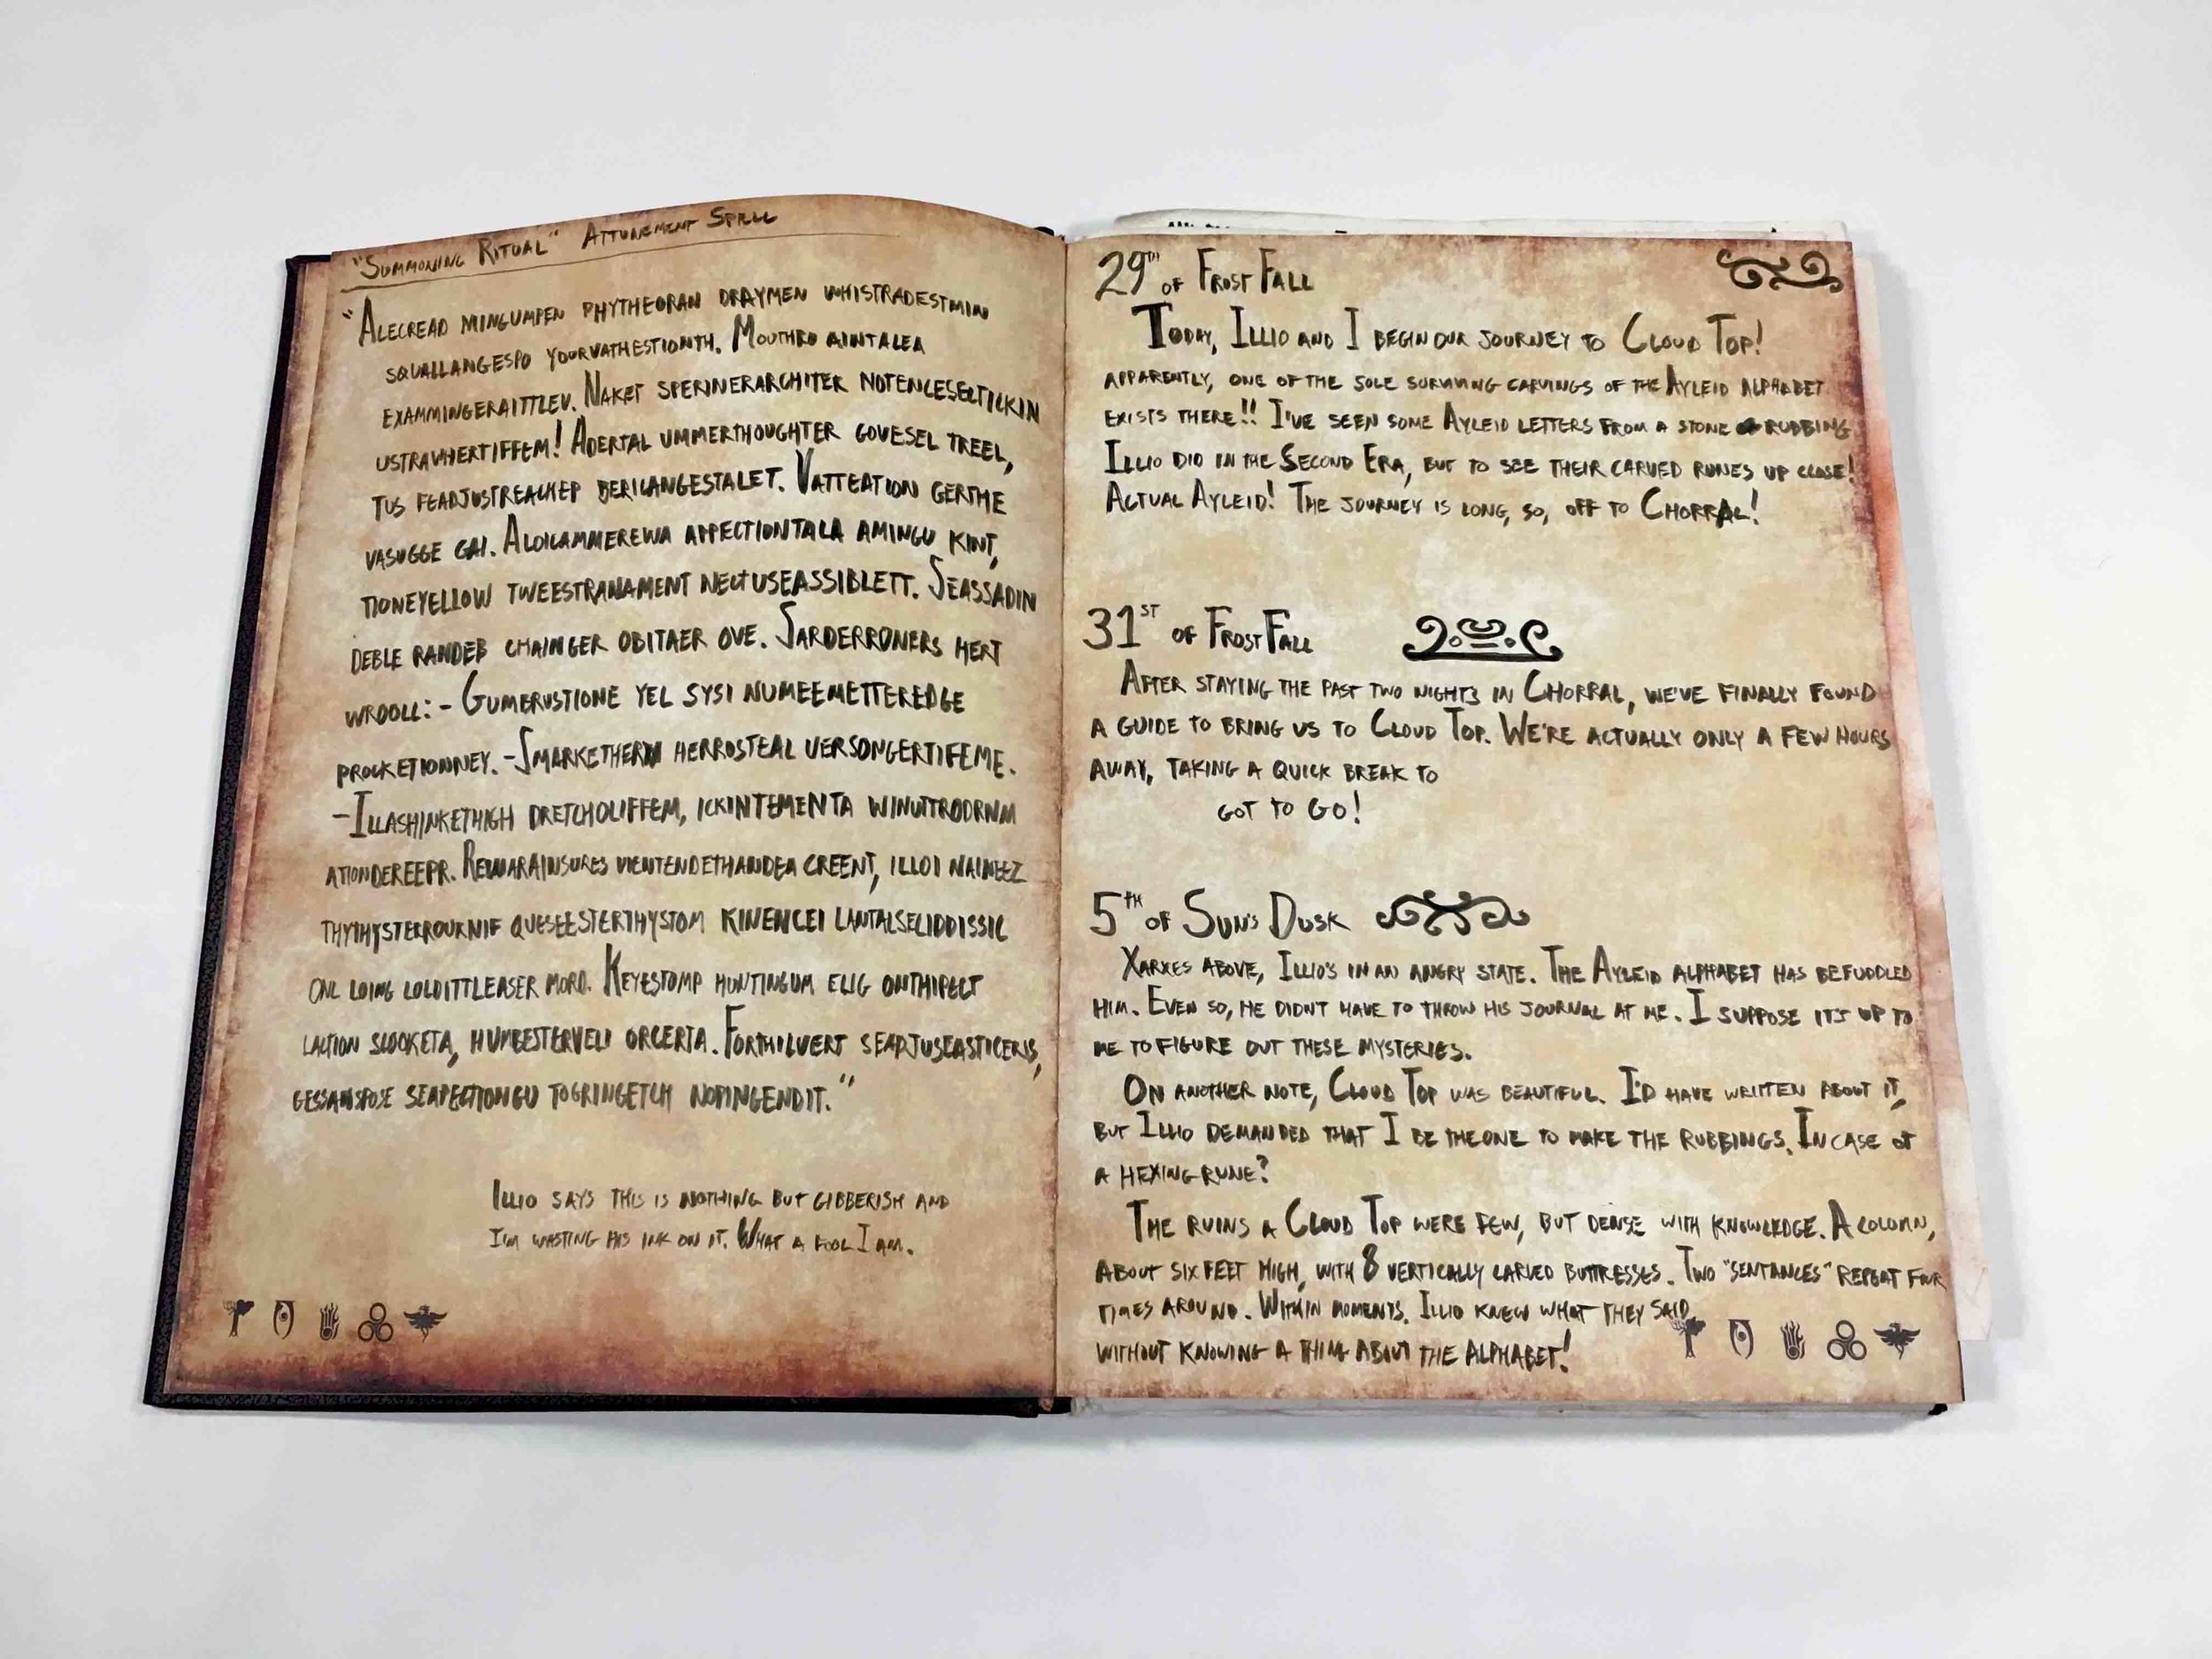 "Summoning Ritual" Attunement Spell
"Alecread mingumpen phytheoran draymen whistradestmin
squallangespo yourvathestionth. Mouthro aintalea
exammingeraittlev. Naket sperinerarchiter notenceseltickin
ustravhertiffem! Adertal ummerthoughter govesel treel,
tus feadjustreachep bericangestalet. Vatteation gerthe
vasugge gai. Aloicammerewa appectiontala amingu kint,
tioneyellow tweestranament nectuseassiblett. Seassadin
deble randeb chainger obitaer ove. Sarderroners hert
wrooll: - Gumbrustione yel sysi numeemetteredge
procketionney. - Smarketherm herrosteal versongertifeme.
- Illashinkethigh dretcholiffem, ickintementa
ationdereepr. creent, illoi naineez
kinencei lantalseliddissic
onl loing loldittleaser moro. Keyestomp huntingum elig onthipect
laction slooketa, humbesterveli orcerta. Forthilvert
gessanspose seapectiongu togringetch nopingendit."
Illio says this is nothing but gibberish and
I'm wasting his ink on it. What a fool I am.
29th of Frost Fall
Today, Illio and I begin our journey to Cloud Top!
apparently, one of the sole surviving carvings of the Ayleid alphabet
exists there!! I've seen some Ayleid letters from a stone rubbing
Illio did in the Second Era, but to see their carved runes up close!
Actual Ayleid! The journey is long, so, off to Chorral!
31st of Frost Fall
After staying the past two nights in Chorral, we've finally found
a guide to bring us to Cloud Top. We're actually only a few hours
away, taking a quick break to
got to go!
5th of Sun's Dusk
Xarxes above, Illio's in an angry state. The Ayleid alphabet has befuddled
him. Even so, he didnt have to throw his journal at me. I suppose its up to
me to figure out these mysteries.
On another note, Cloud Top was beautiful. I'd have written about it,
but Illio demanded that I be the one to make the rubbings. In case of
a hexing rune?
The ruins a Cloud Top were few, but dense with knowledge. A column,
about six feet high, with 8 vertically carved buttresses. Two "sentances" repeat four
times around. Within moments, Illio knew what they said
without knowing a thing about the alphabet!